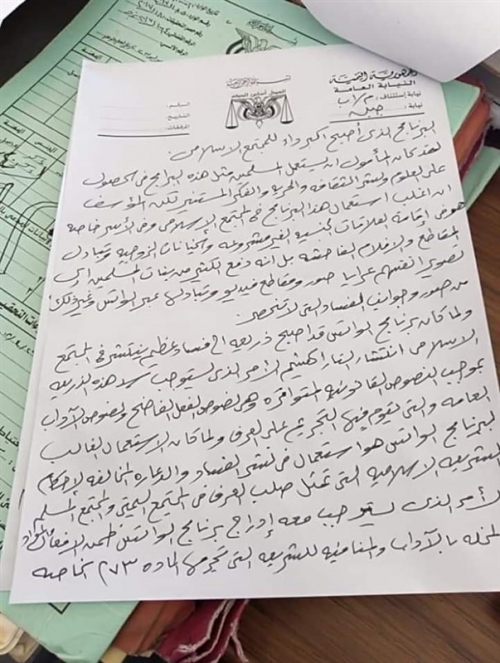 الجمهورية اليمنية
النيابة العامة
نيابة استئناف: م/اب
نيابة: جبله
الرقم:
التاريخ:
المرفقات:
البرنامج الذي أصبح أكبر داء للمجتمع الاسلامي:
لقد كان المأمول ان يستعمل المسلمين مثل هذه البرامج في الحصول
على العلوم ونشر الثقافه والحريه والفكر المستنير لكن المؤسف
ان اغلب استعمال هذا البرنامج في المجتمع الإسلامي وفي الأسر خاصه
هو في اقامة العلاقات الجنسية الغير مشروعه والخيانات الزوجيه وتبادل
المقاطع والافلام الفاحشه بل انه دفع الكثير من بنات المسلمين الى
تصوير انفسهم عرايا صور ومقاطع فيديو وتبادلها عبر الواتس وغير ذلك
من صور وجوانب الفساد التي لا تنحصر
ولما كان برنامج الواتس قد اصبح ذريعه الى فساد عظيم ينتشر في المجتمع
الاسلامي انتشار النار في الهشيم الأمر الذي يستوجب سد هذه الذريعه
بموجب النصوص القانونيه المتوافره وهي نصوص الفعل الفاضح ونصوص الآداب
العامه والتي تقوم فيها التجريم على العرف ولما كان الاستعمال الغالب
لبرنامج الواتس هو استعمال في نشر الفساد والدعاره المخالفه لأحكام
الشريعه الاسلاميه التي تمثل صلب العرف في المجتمع اليمني والمجتمع المسلم
الأمر الذي يستوجب معه إدراج برنامج الواتس ضمن الافعال والمواد
المخله بالآداب والمنافيه للشريعه التي تجرمها الماده ٢٧٣ الخاصه